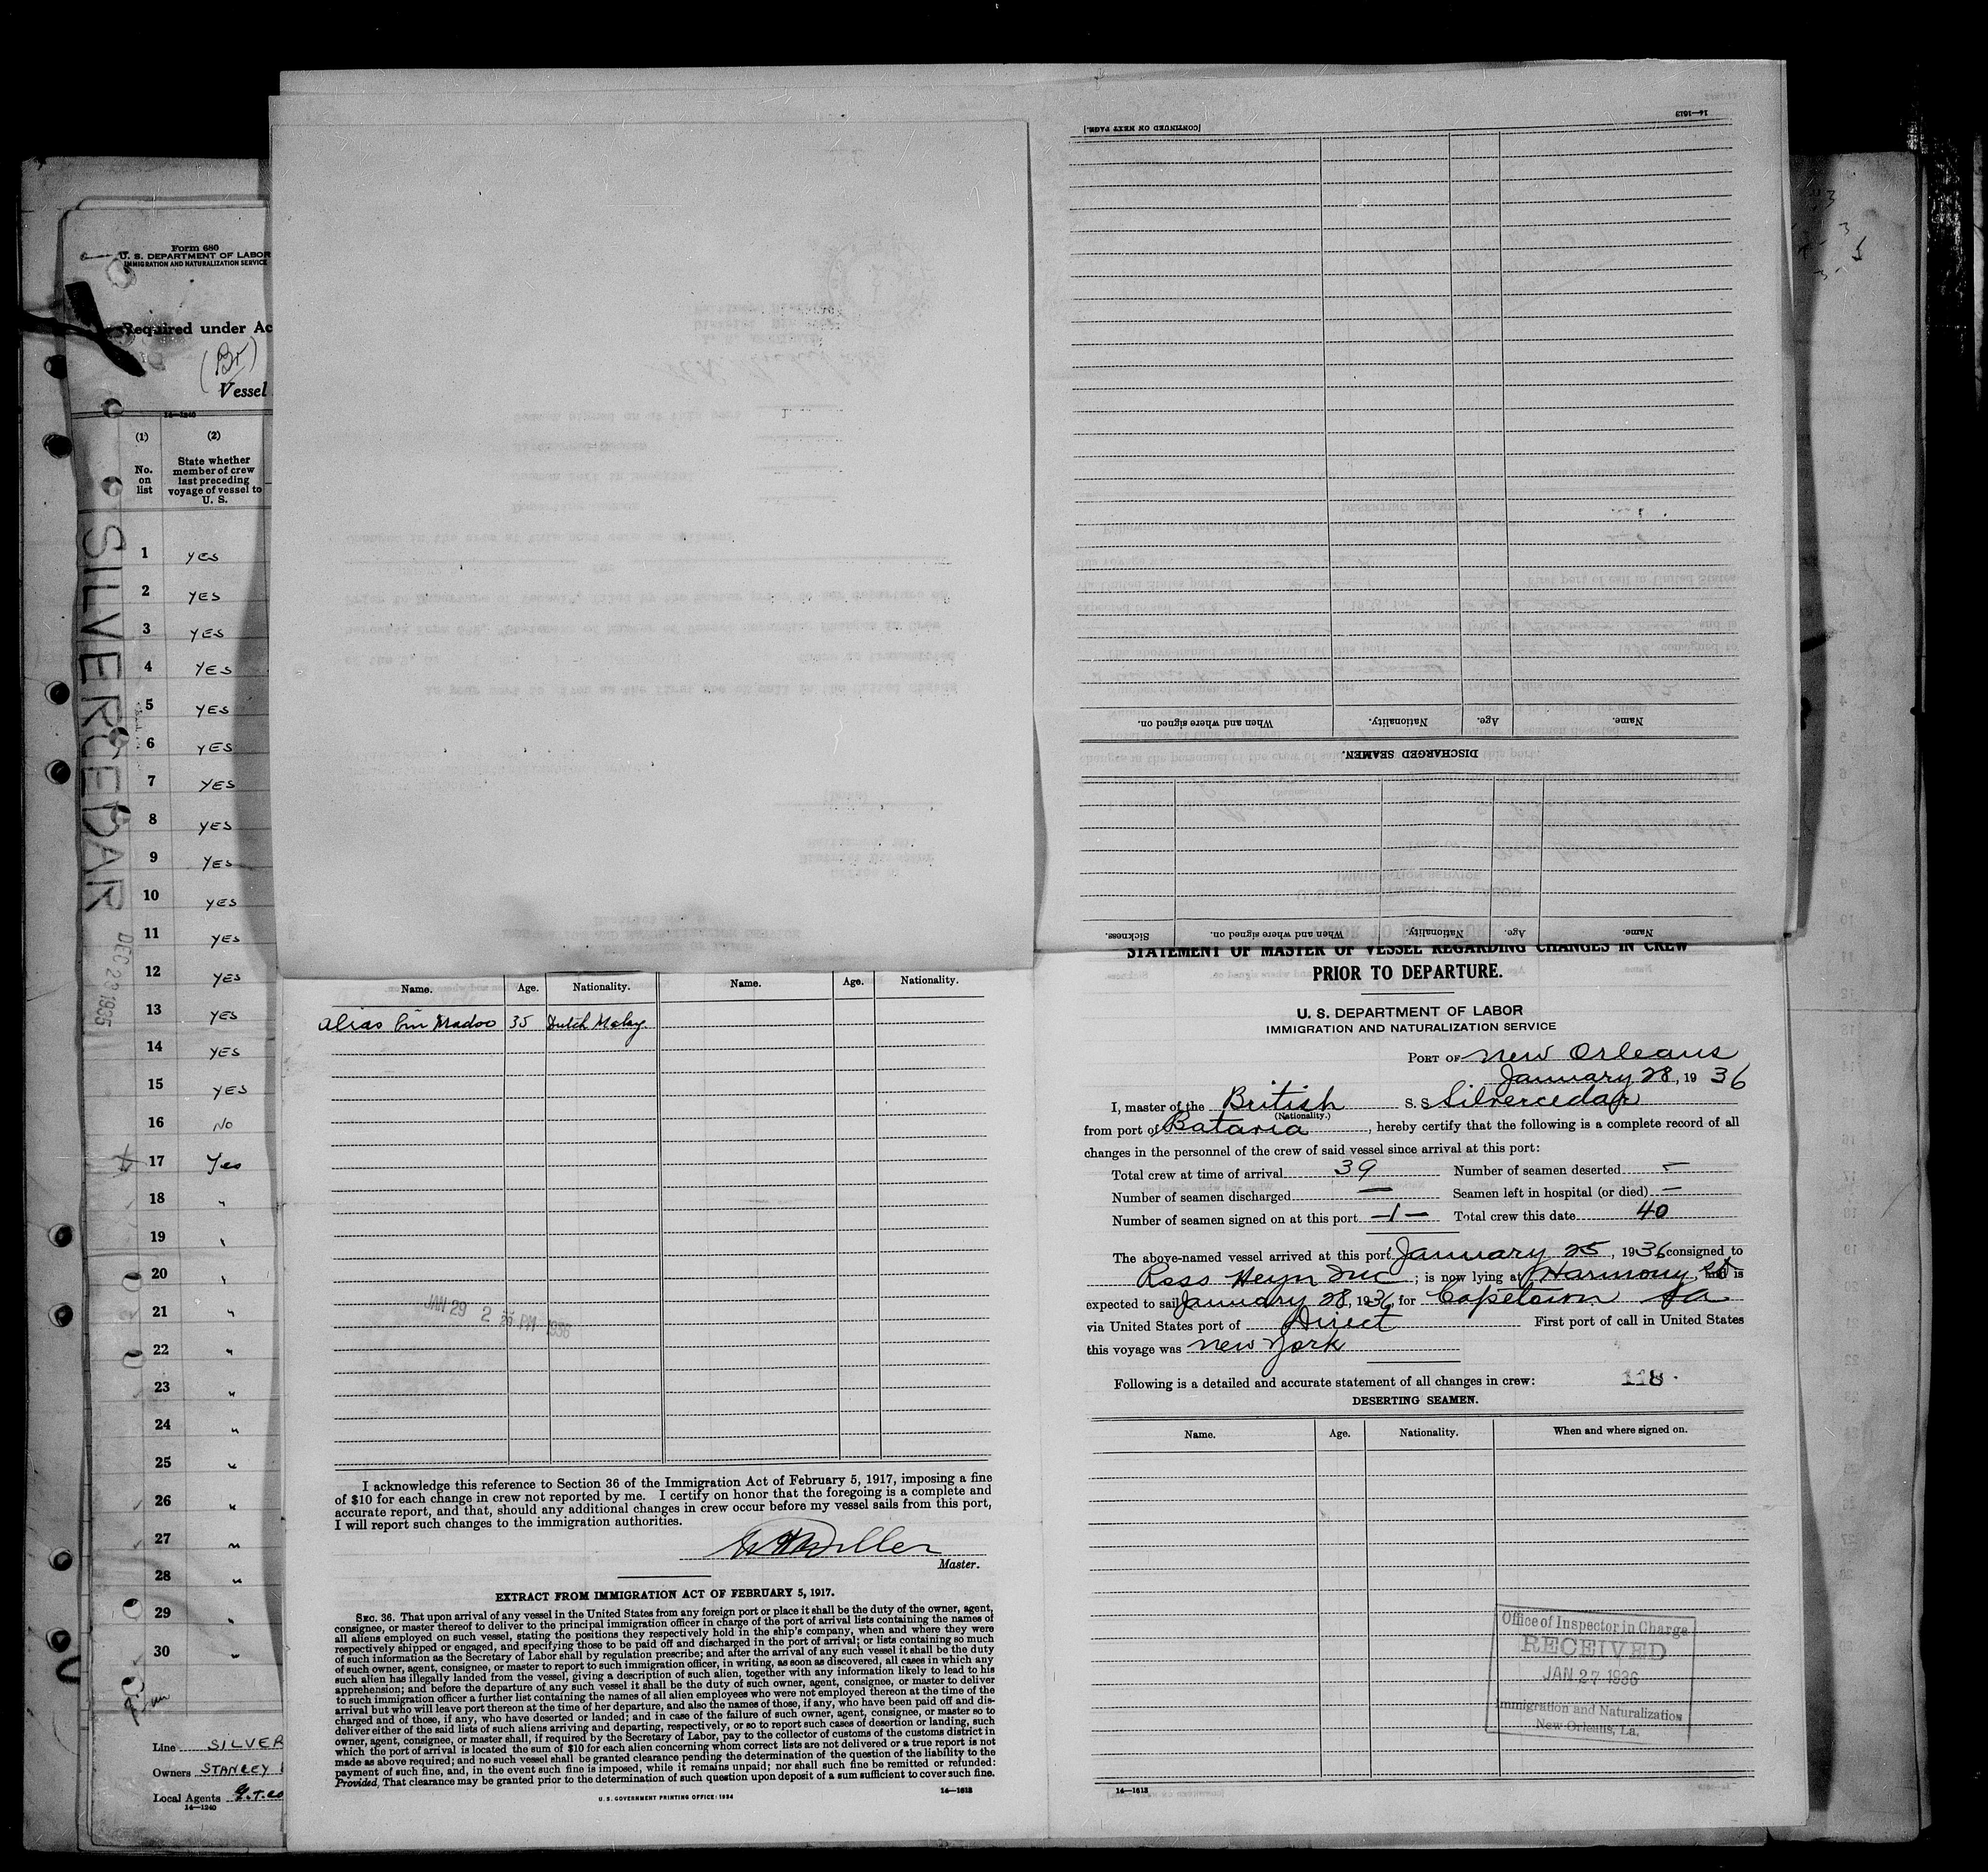 Form 680
U. S. DEPARTMENT OF LABOR
IMMIGRATION AND NATURALIZATION SERVICE
Required under Ac
(Br)
Vessel
14—1240
(1) (2)
No. on list
State whether member of crew last preceding voyage of vessel to U. S.
SILVERCEDAR DEC 23 1935
1 YES
2 YES
3 YES
4 YES
5 YES
6 YES
7 YES
8 YES
9 YES
10 YES
11 YES
12 YES
13 YES
14 YES
15 YES
16 No
17 Yes
18 "
19 "
20 "
21 "
22 "
23 "
24 "
25 "
26 "
27 "
28 "
29 "
30 "
Line SILVER
Owners STANLEY
Local Agents
14—1240
[CONTINUED ON NEXT PAGE.] 14—1613
Name. Age. Nationality. When and where signed on.
DISCHARGED SEAMEN.
Name. Age. Nationality. When and where signed on. Sickness.
Name. Age. Nationality. Name. Age. Nationality.
alias bin Madoo 35 Dutch Malay
JAN 29 2 26 PM 1936
I acknowledge this reference to Section 36 of the Immigration Act of February 5, 1917, imposing a fine
of $10 for each change in crew not reported by me. I certify on honor that the foregoing is a complete and
accurate report, and that, should any additional changes in crew occur before my vessel sails from this port,
I will report such changes to the immigration authorities.
Master.
EXTRACT FROM IMMIGRATION ACT OF FEBRUARY 5, 1917.
SEC. 36. That upon arrival of any vessel in the United States from any foreign port or place it shall be the duty of the owner, agent,
consignee, or master thereof to deliver to the principal immigration officer in charge of the port of arrival lists containing the names of
all aliens employed on such vessel, stating the positions they respectively hold in the ship's company, when and where they were
respectively shipped or engaged, and specifying those to be paid off and discharged in the port of arrival; or lists containing so much
of such information as the Secretary of Labor shall by regulation prescribe; and after the arrival of any such vessel it shall be the duty
of such owner, agent, consignee, or master to report to such immigration officer, in writing, as soon as discovered, all cases in which any
such alien has illegally landed from the vessel, giving a description of such alien, together with any information likely to lead to his
apprehension; and before the departure of any such vessel it shall be the duty of such owner, agent, consignee, or master to deliver
to such immigration officer a further list containing the names of all alien employees who were not employed thereon at the time of the
arrival but who will leave port thereon at the time of her departure, and also the names of those, if any, who have been paid off and dis-
charged and of those, if any, who have deserted or landed; and in case of the failure of such owner, agent, consignee, or master so to
deliver either of the said lists of such aliens arriving and departing, respectively, or so to report such cases of desertion or landing, such
owner, agent, consignee, or master shall, if required by the Secretary of Labor, pay to the collector of customs of the customs district in
which the port of arrival is located the sum of $10 for each alien concerning whom correct lists are not delivered or a true report is not
made as above required; and no such vessel shall be granted clearance pending the determination of the question of the liability to the
payment of such fine, and, in the event such fine is imposed, while it remains unpaid; nor shall such fine be remitted or refunded:
Provided, That clearance may be granted prior to the determination of such question upon deposit of a sum sufficient to cover such fine.
U. S. GOVERNMENT PRINTING OFFICE: 1934 14—1613
STATEMENT OF MASTER OF VESSEL REGARDING CHANGES IN CREW
PRIOR TO DEPARTURE.
U. S. DEPARTMENT OF LABOR
IMMIGRATION AND NATURALIZATION SERVICE
PORT OF New Orleans
January 28, 19 36
I, master of the British S. S Silvercedar
(Nationality.)
from port of Batavia, hereby certify that the following is a complete record of all
changes in the personnel of the crew of said vessel since arrival at this port:
Total crew at time of arrival 39 Number of seamen deserted —
Number of seamen discharged — Seamen left in hospital (or died) —
Number of seamen signed on at this port —1— Total crew this date 40
The above-named vessel arrived at this port January 25, 1936 consigned to
Ross Heyn Inc; is now lying at Harmony St and is
expected to sail January 28, 1936, for Capetown SA
via United States port of Direct First port of call in United States
this voyage was New York
Following is a detailed and accurate statement of all changes in crew: 118.
DESERTING SEAMEN.
Name. Age. Nationality. When and where signed on.
Office of Inspector in Charge
RECEIVED
JAN 27 1936
Immigration and Naturalization
New Orleans, La.
14—1613